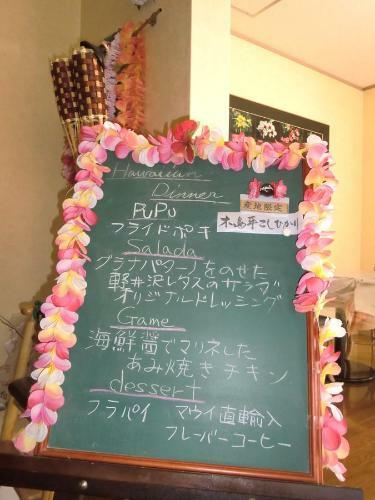 Hawaiian
Dinner
PuPu
フライドポキ
Salada
グラナパダーノをのせた
軽井沢レタスのサラダ
オリジナルドレッシング
Game
海鮮醤でマリネした
あみ焼きチキン
dessert
フラパイ マウイ直輸入
フレーバーコーヒー
産地限定
木島平こしひかり